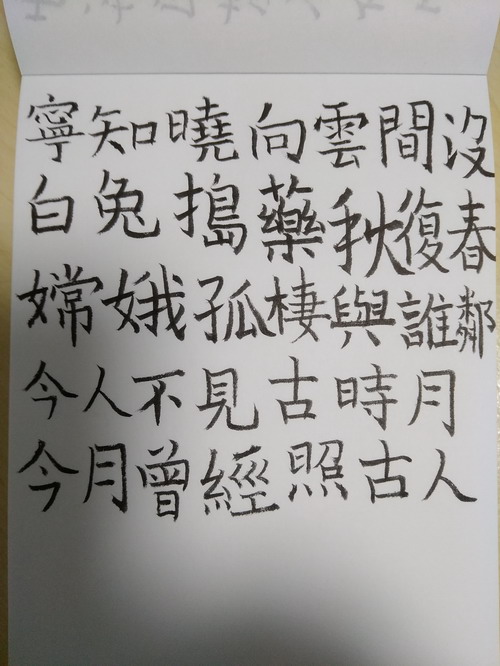 寧知曉向雲間沒
白兔搗藥秋復春
嫦娥孤棲與誰鄰
今人不見古時月
今月曾經照古人